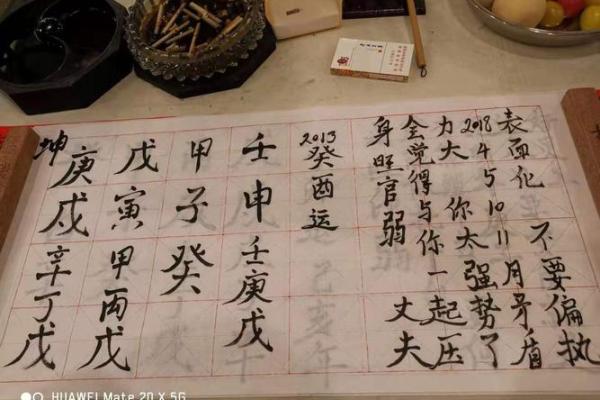 坤
庚戌辛丁戊
戊寅甲丙戊
甲子癸
壬申壬庚戊
2013癸酉运
身旺官弱 丈夫
会觉得与你一起压
力大 你太强势了
2018 4 5 10 11月矛盾
表面化 不要偏执
HUAWEI Mate 20 X 5G